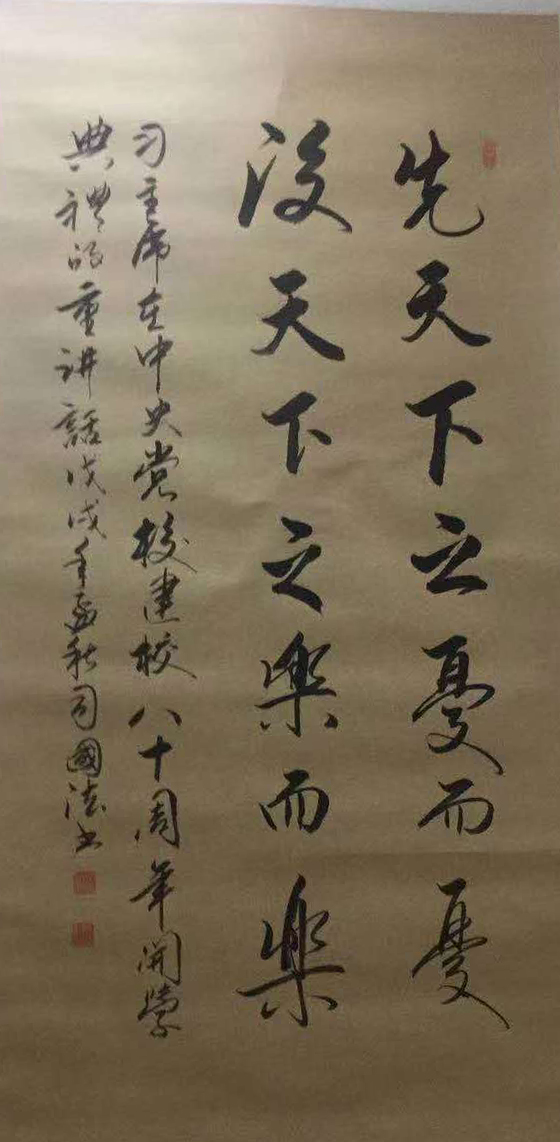 先天下之憂而憂
後天下之樂而樂
习主席在中央党校建校八十周年開學
典禮的重讲話戊戌年孟秋司國法书